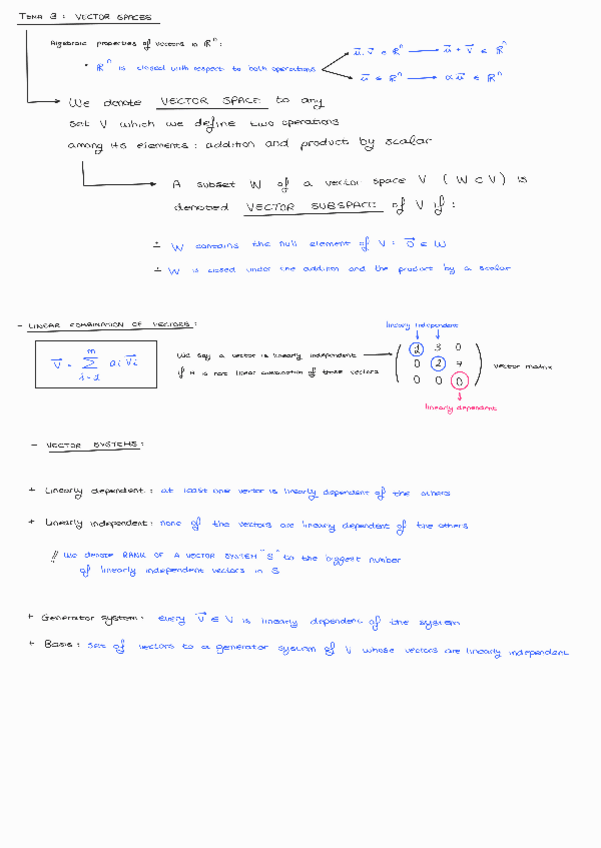 TEMA 3: VECTOR SPACES
Algebraic properties of vectors in ℝⁿ:
· ℝⁿ is closed with respect to both operations
u⃗, v⃗ ∈ ℝⁿ → u⃗ + v⃗ ∈ ℝⁿ
u⃗ ∈ ℝⁿ → αu⃗ ∈ ℝⁿ
We denote VECTOR SPACE to any
set V which we define two operations
among its elements: addition and product by scalar
A subset W of a vector space V (W ⊂ V) is
denoted VECTOR SUBSPACE of V if:
· W contains the null element of V: 0⃗ ∈ W
· W is closed under the addition and the product by a scalar
- LINEAR COMBINATION OF VECTORS:
v⃗ = Σ ai v⃗i
m
i=1
We say a vector is linearly independent
if it is not linear combination of these vectors
linearly independent
2 3 0
0 2 4
0 0 0
vector matrix
linearly dependent
- VECTOR SYSTEMS:
+ Linearly dependent: at least one vector is linearly dependent of the others
+ Linearly independent: none of the vectors are linearly dependent of the others
// We denote RANK OF A VECTOR SYSTEM "S" to the biggest number
of linearly independent vectors in S
+ Generator system: every v⃗ ∈ V is linearly dependent of the system
+ Basis: set of vectors to a generator system of V whose vectors are linearly independent